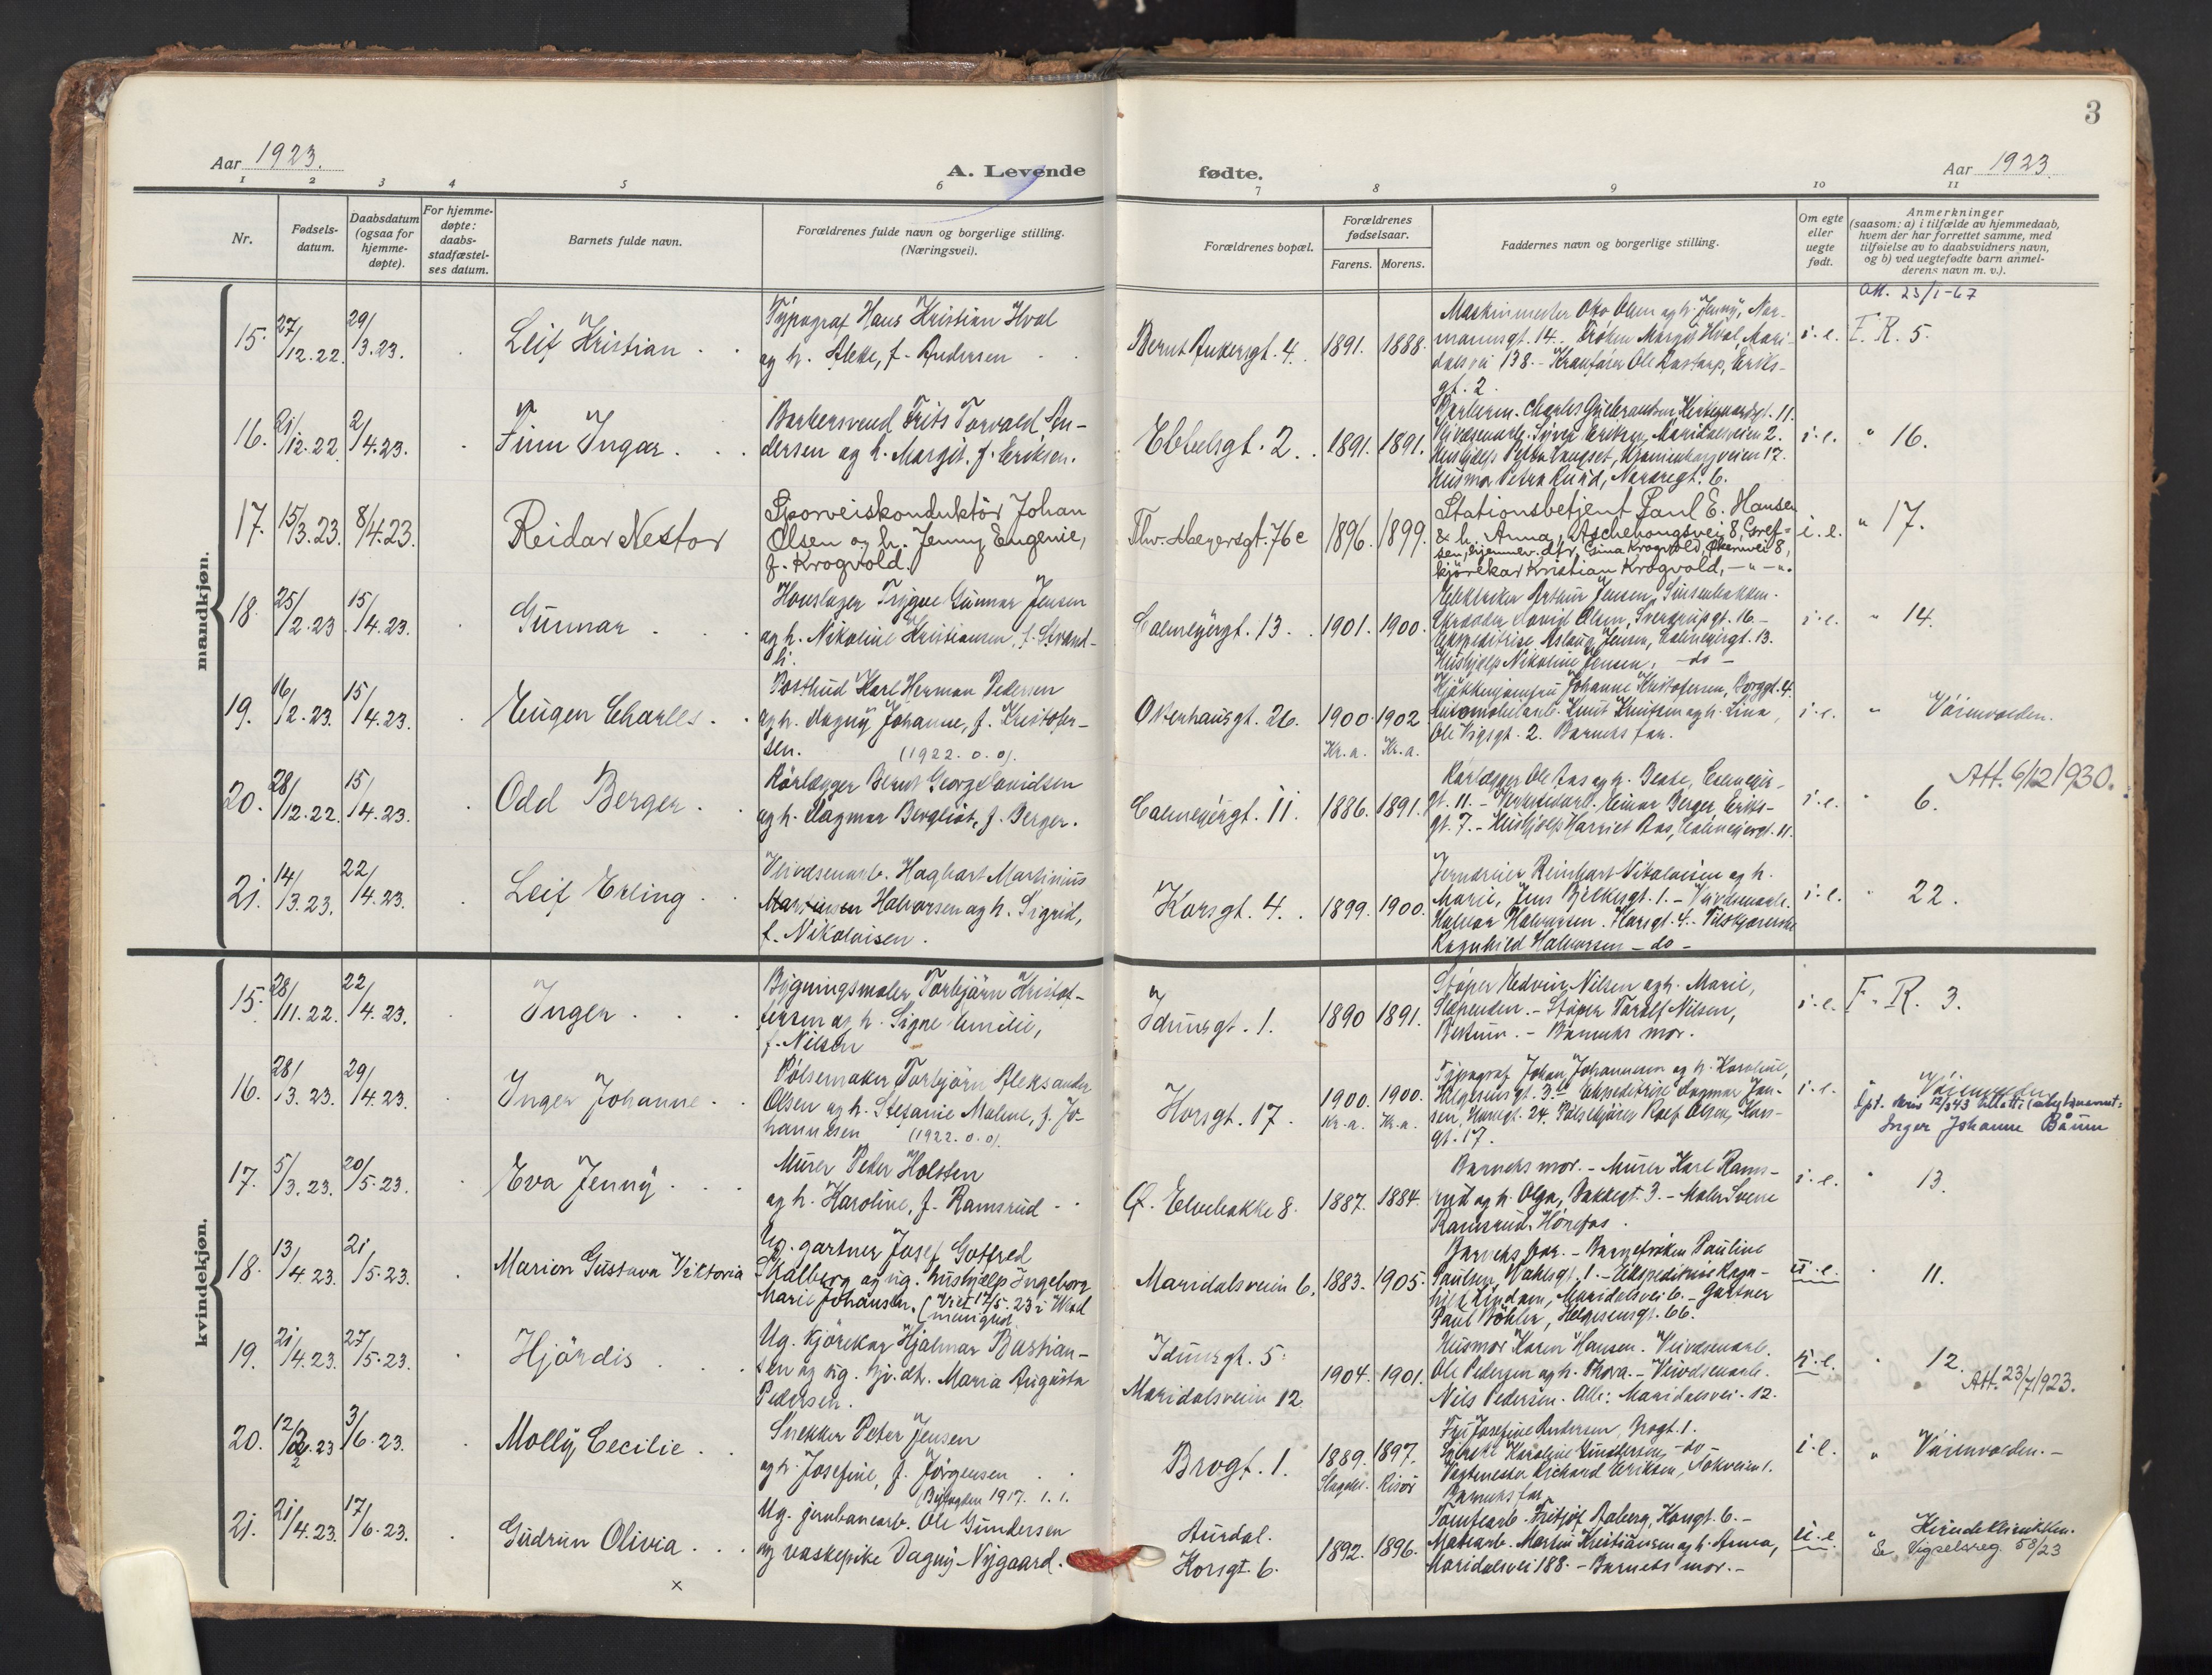 3
Aar 1923.
A. Levende
fødte.
Aar 1923.
1 2 3 4 5 6 7 8 9 10 11
Nr.
Fødsels-
datum.
Daabsdatum
(ogsaa for
hjemme-
døpte).
For hjemme-
døpte:
daabs-
stadfæstel-
ses datum.
Barnets fulde navn.
Forældrenes fulde navn og borgerlige stilling.
(Næringsvei).
Forældrenes bopæl.
Forældrenes
fødselsaar.
Farens. Morens.
Faddernes navn og borgerlige stilling.
Om egte
eller
uegte
født.
Anmerkninger
(saasom: a) i tilfælde av hjemmedaab,
hvem der har forrettet samme, med
tilføielse av to daabsvidners navn,
og b) ved uegtefødte barn anmel-
derens navn m. v.).
mandkjøn.
15. 27/12.22. 29/3.23. Leif Kristian
Typograf Hans Kristian Hval
og h. Aleke, f. Andersen
Bernt Ankersgt. 4. 1891. 1888.
Maskinmester Otto Olsen og h. Jenny, Nor-
mannsgt. 14. Frøken Margit Hval, Mari-
dalsvei 138. - Ole Rastarp, Eriks-
gt. 2.
i.e.
Att. 23/1-67
F. R. 5.
16. 21/12.22. 2/4.23. Finn Ingar
Barbersvend Frits Torvald An-
dersen og h. Margit, f. Eriksen.
Ebbelsgt. 2. 1891. 1891.
Charles Gulbrandsen 11.
Veivæsenarb. Syver Eriksen, Maridalsveien 2.
Hushjælp Petra 17.
Husmor Petra Ruud, Norregt. 6.
i.e. " 16.
17. 15/3.23. 8/4.23. Reidar Nestor
Sporveiskonduktör Johan
Olsen og h. Jenny Eugenie,
f. Krogvold.
Thv. Meyersgt. 76c 1896. 1899.
Stationsbetjent Paul E. Hansen
& h. Anna, Aschehougsvei 8, Gref-
sen, hjemmev. dtr. Gina Krogvold, Økernvei 8,
kjörekar Kristian Krogvold, - " - ".
i.e. " 17.
18. 25/2.23. 15/4.23. Gunnar
Hovslager Trygve Gunnar Jensen
og h. Nikoline Kristiansen, f. Strand-
li.
Calmeyersgt. 13. 1901. 1900.
Elektriker Arthur Jensen, Sinsenbakken.
Skrædder David Olsen, Sverdrupsgt. 16. -
Ekspeditrise Aslaug Jensen, Calmeyersgt. 13.
Hushjælp Nikoline Jensen, - do -
i.e. " 14.
19. 16/2.23. 15/4.23. Eugen Charles
Postbud Karl Herman Pedersen
og h. Dagny Johanne, f. Kristofer-
sen. (1922. o. o).
Osterhausgt. 26. 1900. 1902
Kr.a. Kr.a.
Kjøkkenjomfru Johanne Kristofersen, Borggt. 4.
Automobilarb. Knut Knutsen og h. Lina,
Ole Vigsgt. 2. Barnets far.
i.e. " Vaienvolden.
20. 28/12.22. 15/4.23. Odd Berger
Rörlægger Bernt Georg Davidsen
og h. Dagmar Bergliot, f. Berger.
Calmeyersgt. 11. 1886. 1891.
Rørlægger Ole Aas og h. Beate, Calmeyer-
gt. 11. - Verkstedarb. Einar Berger, Eriks-
gt. 7. - Hushjælp Harriet Aas, Calmeyersgt. 11.
i.e. " 6.
Att. 6/12 1930.
21. 14/3.23. 22/4.23. Leif Erling
Veivæsenarb. Hagbart Martinius
Halvorsen og h. Sigrid,
f. Nikolaisen.
Korsgt. 4. 1899. 1900.
Jerndreier Reinhart Nikolaisen og h.
Marie, Jens Bjelkesgt. 1. - Veivæsenarb.
Halvor Halvorsen. Korsgt. 4.
Ragnhild Halvorsen - do -
i.e. " 22.
kvindekjøn.
15. 28/11.22. 22/4.23. Inger
Bygningsmaler Torbjörn Kristof-
fersen og h. Signe Emilie,
f. Nilsen
Idunsgt. 1. 1890 1891.
Støper Edvin Nilsen og h. Marie,
Slependen. - Støper Toralf Nilsen,
Bestum. - Barnets mor.
i.e. F. R. 3.
16. 28/3.23. 29/4.23. Inger Johanne
Pølsemaker Torbjörn Aleksander
Olsen og h. Stefanie Malene, f. Jo-
hannesen (1922. o. o).
Korsgt. 17. 1900. 1900.
Kr.a. Kr.a.
Typograf Johan Johannesen og h. Karoline,
Helgesensgt. 3. Ekspeditrise Dagmar Jan-
sen, Korsgt. 24. Rolf Olsen, Kors-
gt. 17.
i.e. Vaienvolden
Inger Johanne Baum
17. 5/3.23. 20/5.23. Eva Jenny
Murer Peter Holsten
og h. Karoline, f. Ramsrud
Ø. Elvebakke 8. 1887. 1884.
Barnets mor. - Murer Karl Rams-
rud og h. Olga, Bakkegt. 3. - Maler Sverre
Ramsrud, Hönefos.
i.e. " 13.
18. 13/4.23. 21/5.23. Marion Gustava Viktoria
Ug. gartner Josef Gotfred
Stalberg og ug. hushjælp Ingeborg
Marie Johansen. (Viet 17/5.23 i Vaal
menighed.
Maridalsveien 6. 1883. 1905.
Barnets far. - Barnefrøken Pauline
Paulsen, Wahlsgt. 1. - Ekspeditrise Ragn-
hild Lindsen, Maridalsvei 6. - Gartner
Paul Böhler, Helgesensgt. 66.
u.e. " 11.
19. 21/4.23. 27/5.23. Hjördis
Ug. kjörekar Hjalmar Bastian-
sen og ug. hj.v.dtr. Maria Augusta
Pedersen.
Idunsgt. 5.
Maridalsveien 12
1904. 1901.
Husmor Karen Hansen. Veivæsenarb.
Ole Pedersen og h. Thora. - Veivæsenarb.
Nils Pedersen. Alle: Maridalsvei. 12.
u.e. " 12.
Att. 23/7 1923.
20. 12/2.23 3/6.23. Molly Cecilie
Snekker Peter Jensen
og h. Josefine, f. Jörgensen
(Byfogden 1917. 1. 1.
Brogt. 1. 1889. 1897.
Risør
Fru Josefine Andersen, Brogt. 1.
Karoline Gundersen, - do -
Vagtmester Richard Eriksen, 1.
Barnets far.
i.e. " Vaienvolden. -
21. 21/4.23. 17/6.23. Gudrun Olivia
Ug. jernbanearb. Ole Gundersen
og vaskepike Dagny Nygaard.
x
Aurdal.
Korsgt. 6.
1892. 1896.
Tomtearb. Fritjof Aaberg, Korsgt. 6. -
Martin Kristiansen og h. Anna,
Maridalsvei 188. - Barnets mor. -
u.e. " Kvindeklinikken.
Se Vigselsreg. 58/23